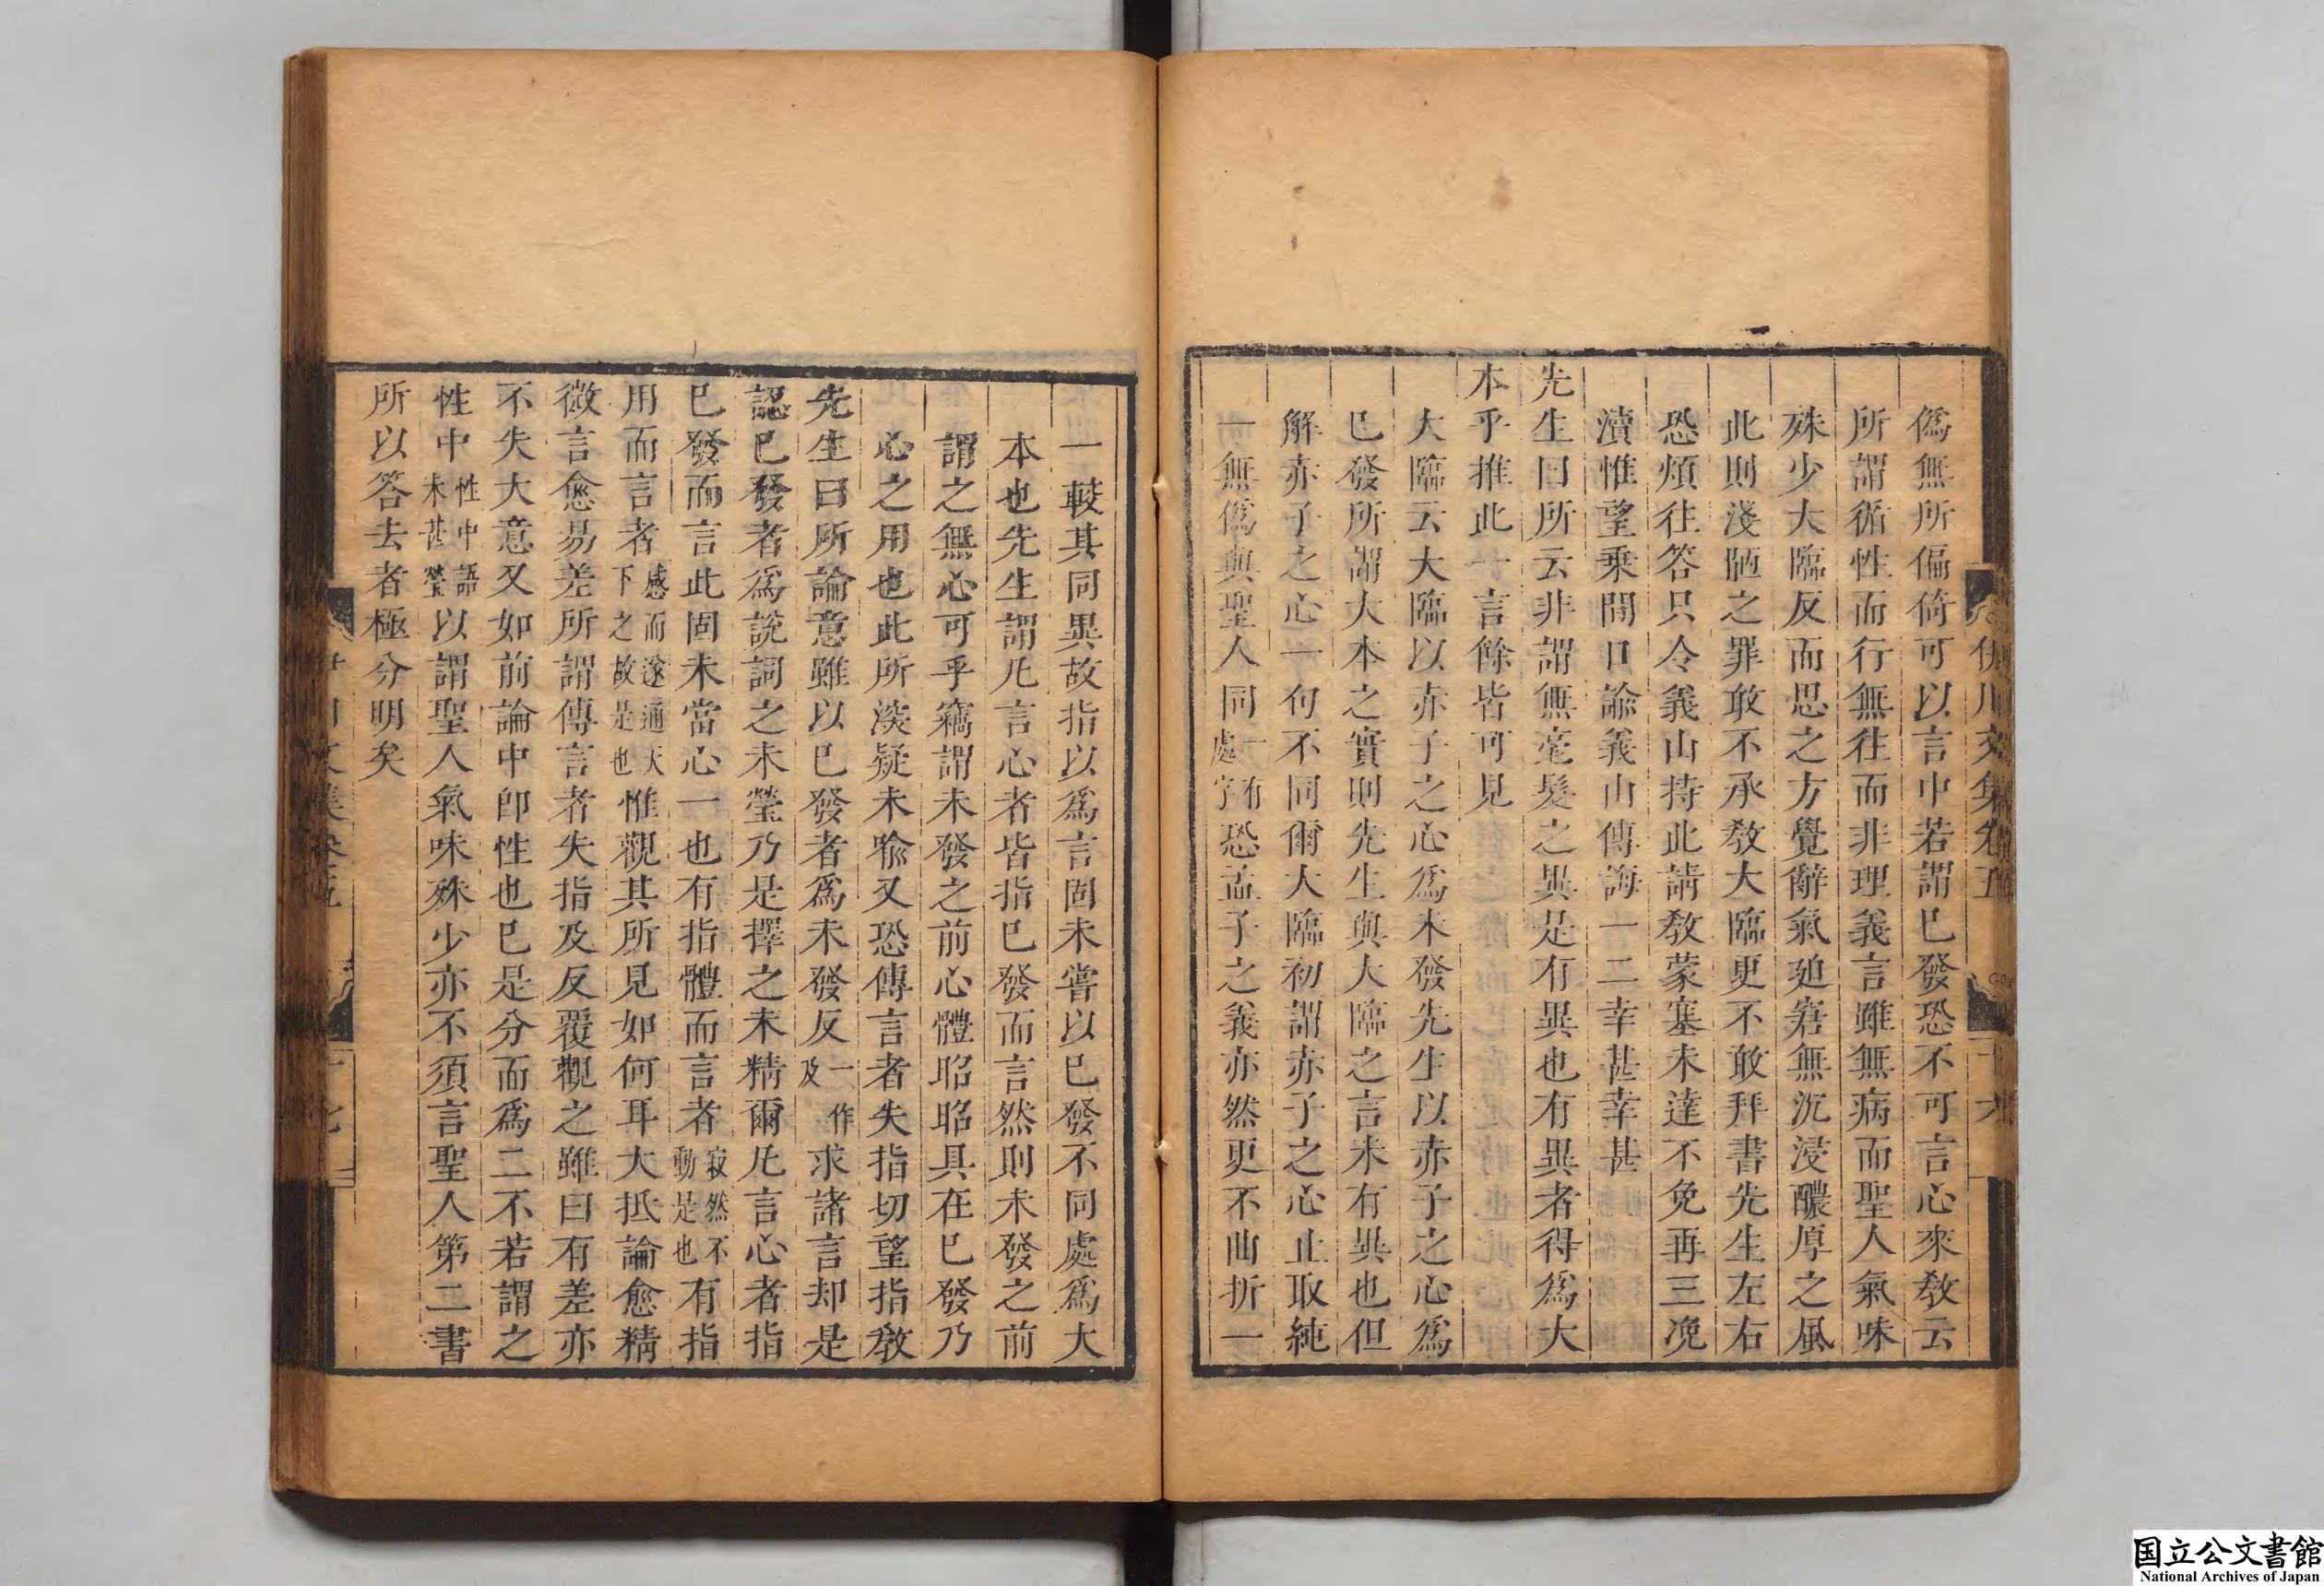 伊川文集卷五
十六
僞無所偏倚可以言中若謂已發恐不可言心來教云
所謂循性而行無往而非理義言雖無病而聖人氣味
殊少大臨反而思之方覺辭氣廹窘無沉浸醲厚之風
此則淺陋之罪敢不承教大臨更不敢拜書先生左右
恐煩往答只令義山持此請教蒙塞未達不免再三凂
瀆惟望乗閒口諭義山傳誨一二幸甚幸甚
先生曰所云非謂無毫髮之異是有異也有異者得爲大
本乎推此一言餘皆可見
大臨云大臨以赤子之心爲未發先生以赤子之心爲
已發所謂大本之實則先生與大臨之言未有異也但
解赤子之心一句不同爾大臨初謂赤子之心止取純
一無僞與聖人同一有處字恐孟子之義亦然更不曲折一
一較其同異故指以爲言固未嘗以已發不同處爲大
本也先生謂凡言心者皆指已發而言然則未發之前
謂之無心可乎竊謂未發之前心體昭昭具在已發乃
心之用也此所深疑未喻又恐傳言者失指切望指教
先生曰所論意雖以已發者爲未發反一作及求諸言却是
認已發者爲說詞之未瑩乃是擇之未精爾凡言心者指
已發而言此固未當心一也有指體而言者寂然不動是也有指
用而言者感而遂通天下之故是也惟觀其所見如何耳大抵論愈精
微言愈易差所謂傳言者失指及反覆觀之雖曰有差亦
不失大意又如前論中即性也已是分而爲二不若謂之
性中性中語未甚瑩以謂聖人氣味殊少亦不須言聖人第二書
所以答去者極分明矣